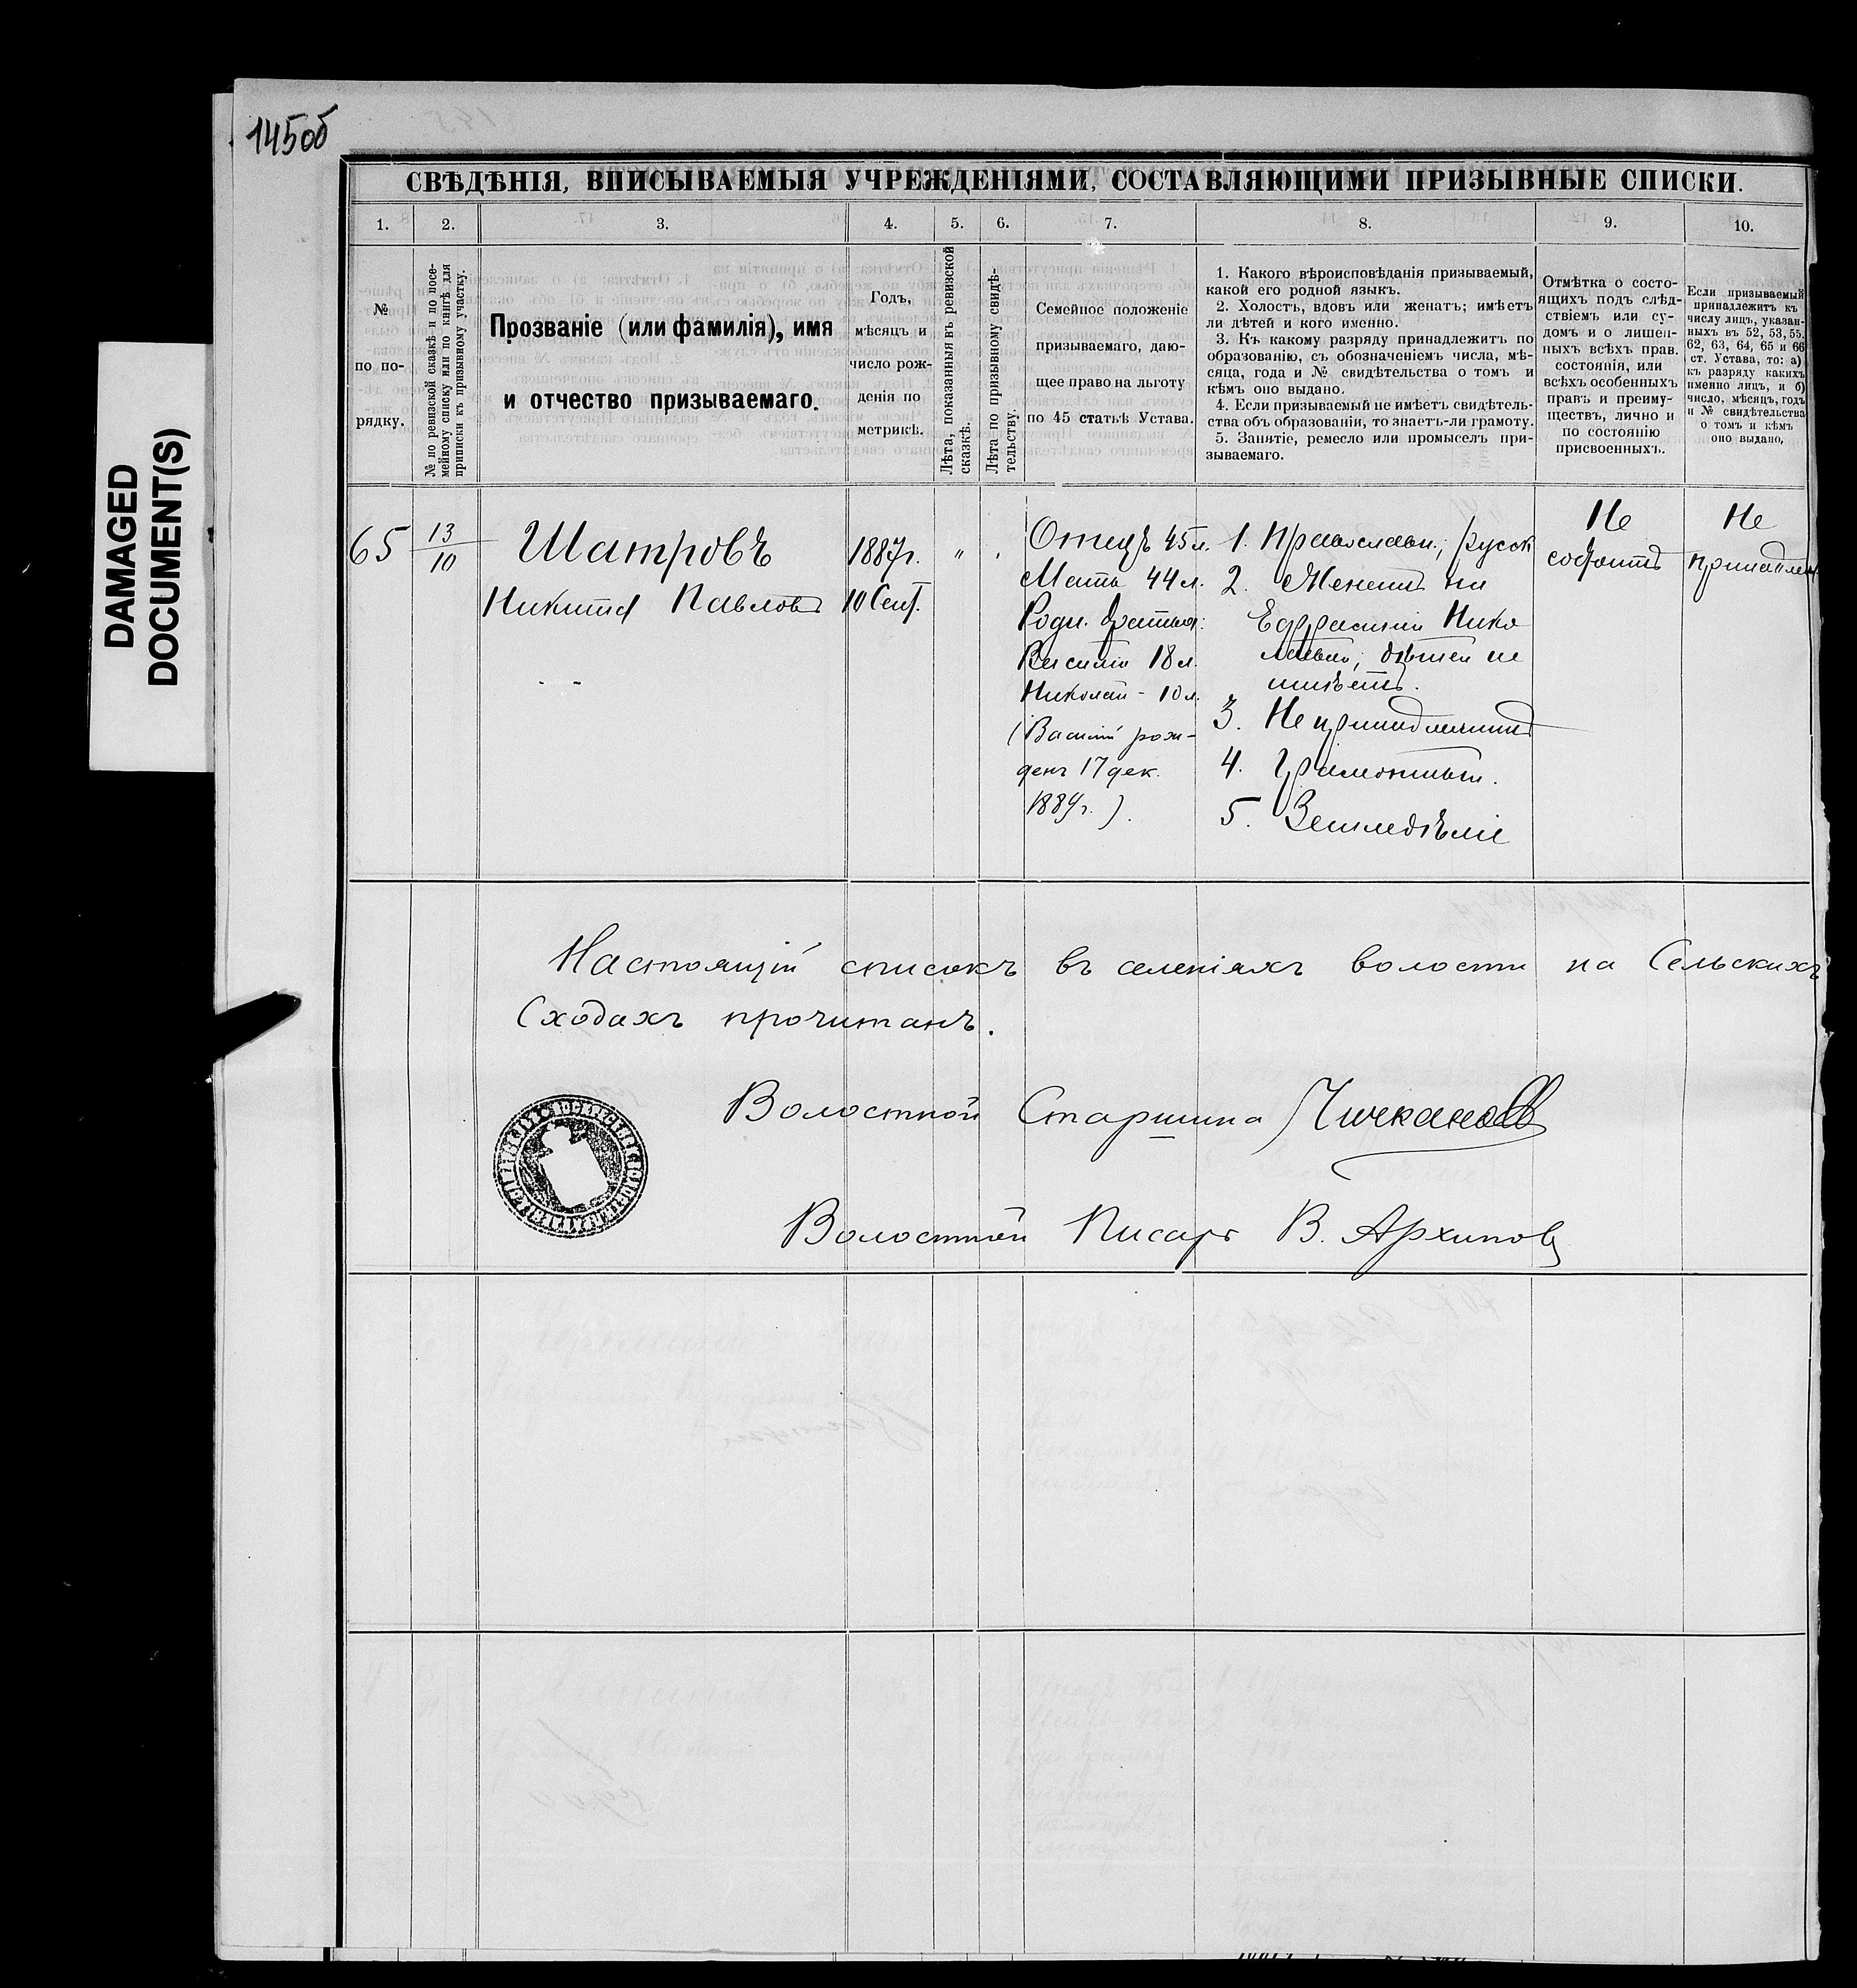 145об
DAMAGED
DOCUMENT(S)
СВѢДѢНІЯ, ВПИСЫВАЕМЫЯ УЧРЕЖДЕНІЯМИ, СОСТАВЛЯЮЩИМИ ПРИЗЫВНЫЕ СПИСКИ.
1. 2. 3. 4. 5. 6. 7. 8. 9. 10.
№
по по-
рядку.
№ по ревизской сказкѣ и по посе-
мейному списку или по книгѣ для
приписки къ призывному участку.
Прозваніе (или фамилія), имя
и отчество призываемаго.
Годъ,
мѣсяцъ и
число рож-
денія по
метрикѣ.
Лѣта, показанныя въ ревизской
сказкѣ.
Лѣта по призывному свидѣ-
тельству.
Семейное положеніе
призываемаго, даю-
щее право на льготу
по 45 статьѣ Устава.
1. Какого вѣроисповѣданія призываемый,
какой его родной языкъ.
2. Холостъ, вдовъ или женатъ; имѣетъ
ли дѣтей и кого именно.
3. Къ какому разряду принадлежитъ по
образованію, съ обозначеніемъ числа, мѣ-
сяца, года и № свидѣтельства о томъ и
кѣмъ оно выдано.
4. Если призываемый не имѣетъ свидѣтель-
ства объ образованіи, то знаетъ-ли грамоту.
5. Занятіе, ремесло или промыселъ при-
зываемаго.
Отмѣтка о состо-
ящихъ подъ слѣд-
ствіемъ или су-
домъ и о лишен-
ныхъ всѣхъ прав.
состоянія, или
всѣхъ особенныхъ
правъ и преиму-
ществъ, лично и
по состоянію
присвоенныхъ.
Если призываемый
принадлежитъ къ
числу лицъ, указан-
ныхъ въ 52, 53, 55,
62, 63, 64, 65 и 66
ст. Устава, то: а)
къ разряду какихъ
именно лицъ, и б)
число, мѣсяцъ, годъ
и № свидѣтельства
о томъ и кѣмъ
оно выдано,
65
13
10
Шатровъ
Никита Павловъ
1887г.
10 Сент.
"
Отецъ 45 л.
Мать 44 л.
Родн. братья:
Василій 18 л.
Николай - 10 л.
(Василій рож-
денъ 17 дек.
1889г.).
1. Православн., русск
2. Женатъ на
Евфрасиніи Нико
лаевой, дѣтей не
имѣетъ.
3. Не принадлежитъ
4. Грамотный.
5. Земледѣліе
Не
состоитъ
Не
принадлеж
Настоящій списокъ въ селеніяхъ волости на Сельскихъ
Сходахъ прочитанъ.
Волостной Старшина Чичкановъ
Волостной Писарь В. Архиповъ